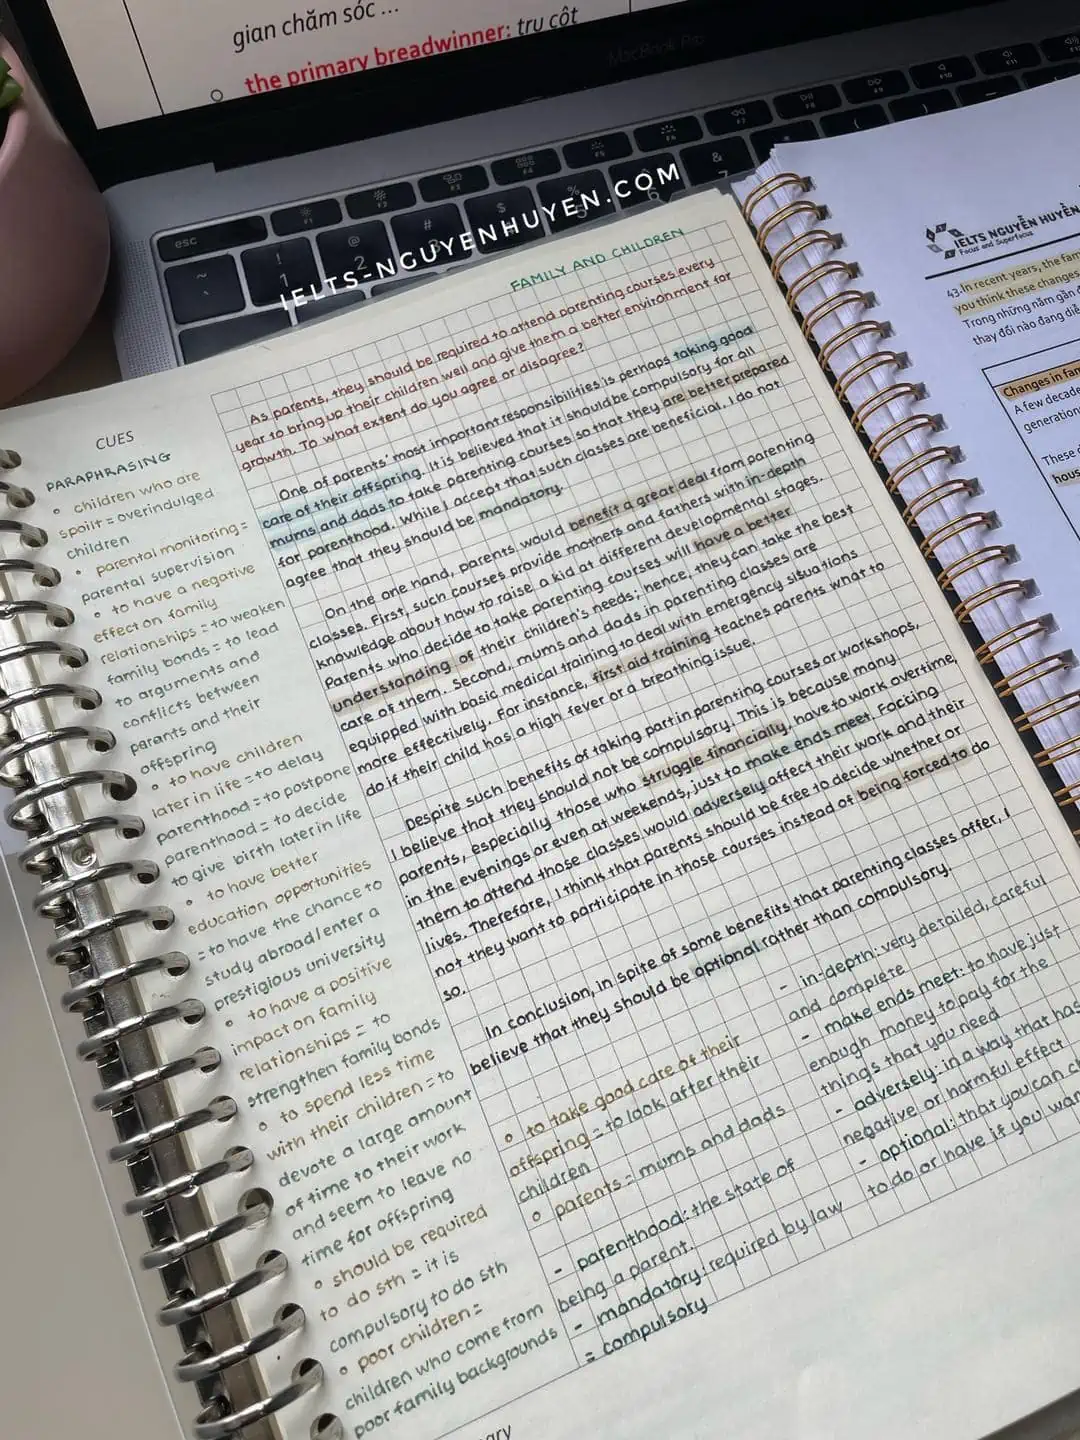 gian chăm sóc ...
the primary breadwinner: trụ cột
MacBook Pro
esc
IELTS-NGUYENHUYEN.COM
FAMILY AND CHILDREN
As parents, they should be required to attend parenting courses every
year to bring up their children well and give them a better environment for
growth. To what extent do you agree or disagree?
One of parents' most important responsibilities is perhaps taking good
care of their offspring. It is believed that it should be compulsory for all
mums and dads to take parenting courses so that they are better prepared
for parenthood. While I accept that such classes are beneficial, I do not
agree that they should be mandatory.
On the one hand, parents would benefit a great deal from parenting
classes. First, such courses provide mothers and fathers with in-depth
knowledge about how to raise a kid at different developmental stages.
Parents who decide to take parenting courses will have a better
understanding of their children's needs; hence, they can take the best
care of them. Second, mums and dads in parenting classes are
equipped with basic medical training to deal with emergency situations
more effectively. For instance, first aid training teaches parents what to
do if their child has a high fever or a breathing issue.
Despite such benefits of taking part in parenting courses or workshops,
I believe that they should not be compulsory. This is because many
parents, especially those who struggle financially, have to work overtime,
in the evenings or even at weekends, just to make ends meet. Foccing
them to attend those classes would adversely affect their work and their
lives. Therefore, I think that parents should be free to decide whether or
not they want to participate in those courses instead of being forced to do
so.
In conclusion, in spite of some benefits that parenting classes offer, I
believe that they should be optional rather than compulsory.
CUES
PARAPHRASING
children who are
spoilt = overindulged
children
parental monitoring =
parental supervision
to have a negative
effect on family
relationships = to weaken
family bonds = to lead
to arguments and
conflicts between
parants and their
offspring
to have children
later in life = to delay
parenthood = to postpone
parenthood = to decide
to give birth later in life
to have better
education opportunities
= to have the chance to
study abroad/enter a
prestigious university
to have a positive
impact on family
relationships = to
strengthen family bonds
to spend less time
with their children = to
devote a large amount
of time to their work
and seem to leave no
time for offspring
should be required
to do sth = it is
compulsory to do sth
poor children =
children who come from
poor family backgrounds
to take good care of their
offspring = to look after their
children
parents = mums and dads
- parenthood: the state of
being a parent.
- mandatory: required by law
= compulsory
- in-depth: very detailed, careful
and complete
- make ends meet: to have just
enough money to pay for the
things that you need
- adversely: in a way that has
negative or harmful effect
- optional: that you can
to do or have if you
IELTS NGUYỄN HUYỀN
Focus and Superfocus
43. In recent years, the
you think these changes
Trong những năm gần
thay đổi nào đang
Changes in
A few
These